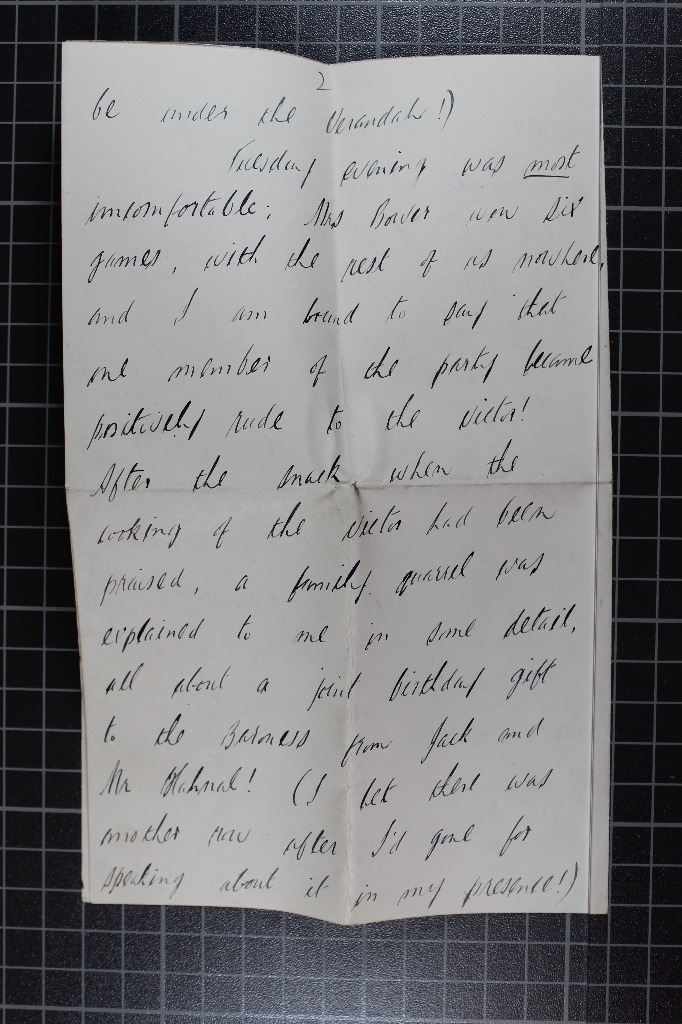 2
be under the Verandah!)
Tuesday evening was most
uncomfortable; Mrs Bower won six
games, with the rest of us nowhere,
and I am bound to say that
one member of the party became
positively rude to the victor!
After the snack, when the
cooking of the victor had been
praised, a family quarrel was
explained to me in some detail,
all about a joint birthday gift
to the Baroness from Jack and
Mr !  (I bet there was
another row after I'd gone for
speaking about it in my presence!)